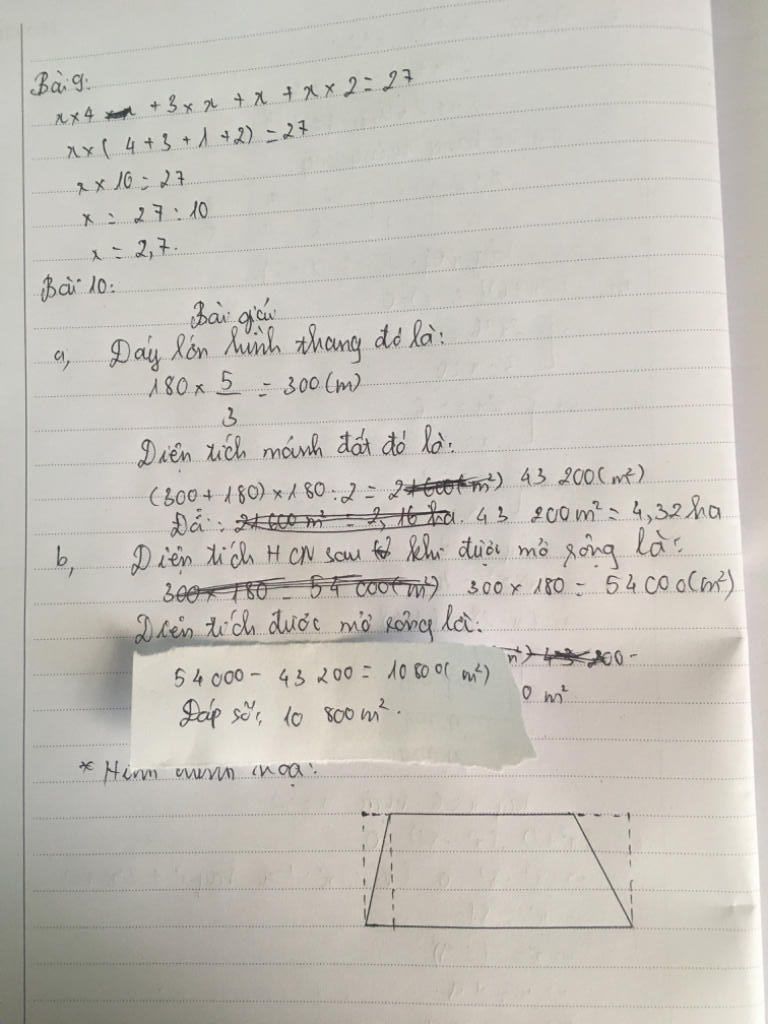 Bài 9:
x × 4 + 3 × x + x + x × 2 = 27
x × ( 4 + 3 + 1 + 2) = 27
x × 10 = 27
x = 27 : 10
x = 2,7.
Bài 10:
Bài giải
a, Dáy lớn hình thang đó là:
180 × 5/3 = 300 (m)
Diện tích mảnh đất đó là:
(300 + 180) × 180 : 2 = 43 200 (m²)
Đổi: 43 200 m² = 4,32 ha
b, Diện tích HCN sau khi được mở rộng là:
300 × 180 = 54 000 (m²)
Diện tích được mở rộng là:
54 000 - 43 200 = 10 800 ( m²)
0 m²
Đáp số: 10 800 m².
* Hình minh hoạ: